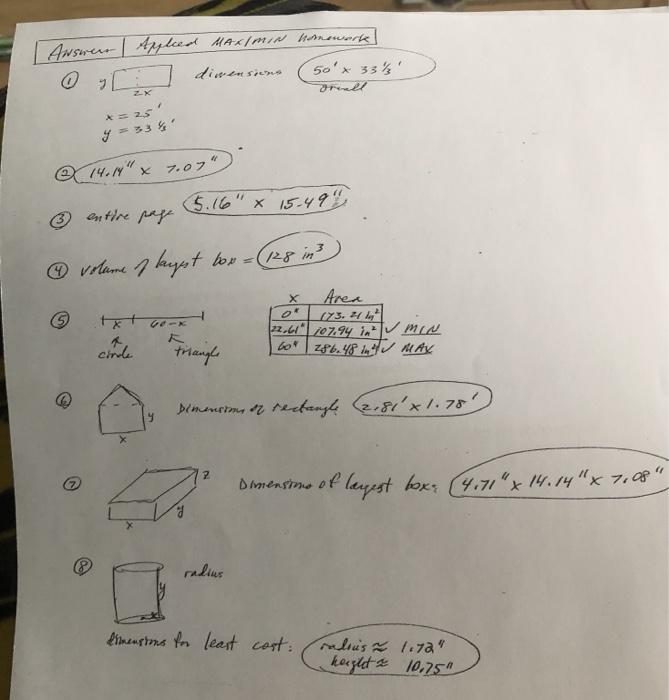 Answers | Applied MAX/MIN Homework
① y 2x dimensions 50' x 33⅓'
overall
x = 25'
y = 33⅓'
② 14.14" x 7.07"
③ entire page 5.16" x 15.49"
④ volume of largest box = 128 in³
⑤ x 60-x
circle triangle
x Area
0" 173.21 in²
22.61" 107.94 in² ✓ MIN
60" 286.48 in² ✓ MAX
⑥ x y Dimensions of rectangle 2.81' x 1.78'
⑦ x y z Dimensions of largest box: 4.71" x 14.14" x 7.08"
⑧ y x radius
dimensions for least cost: radius ≈ 1.72"
height ≈ 10.75"